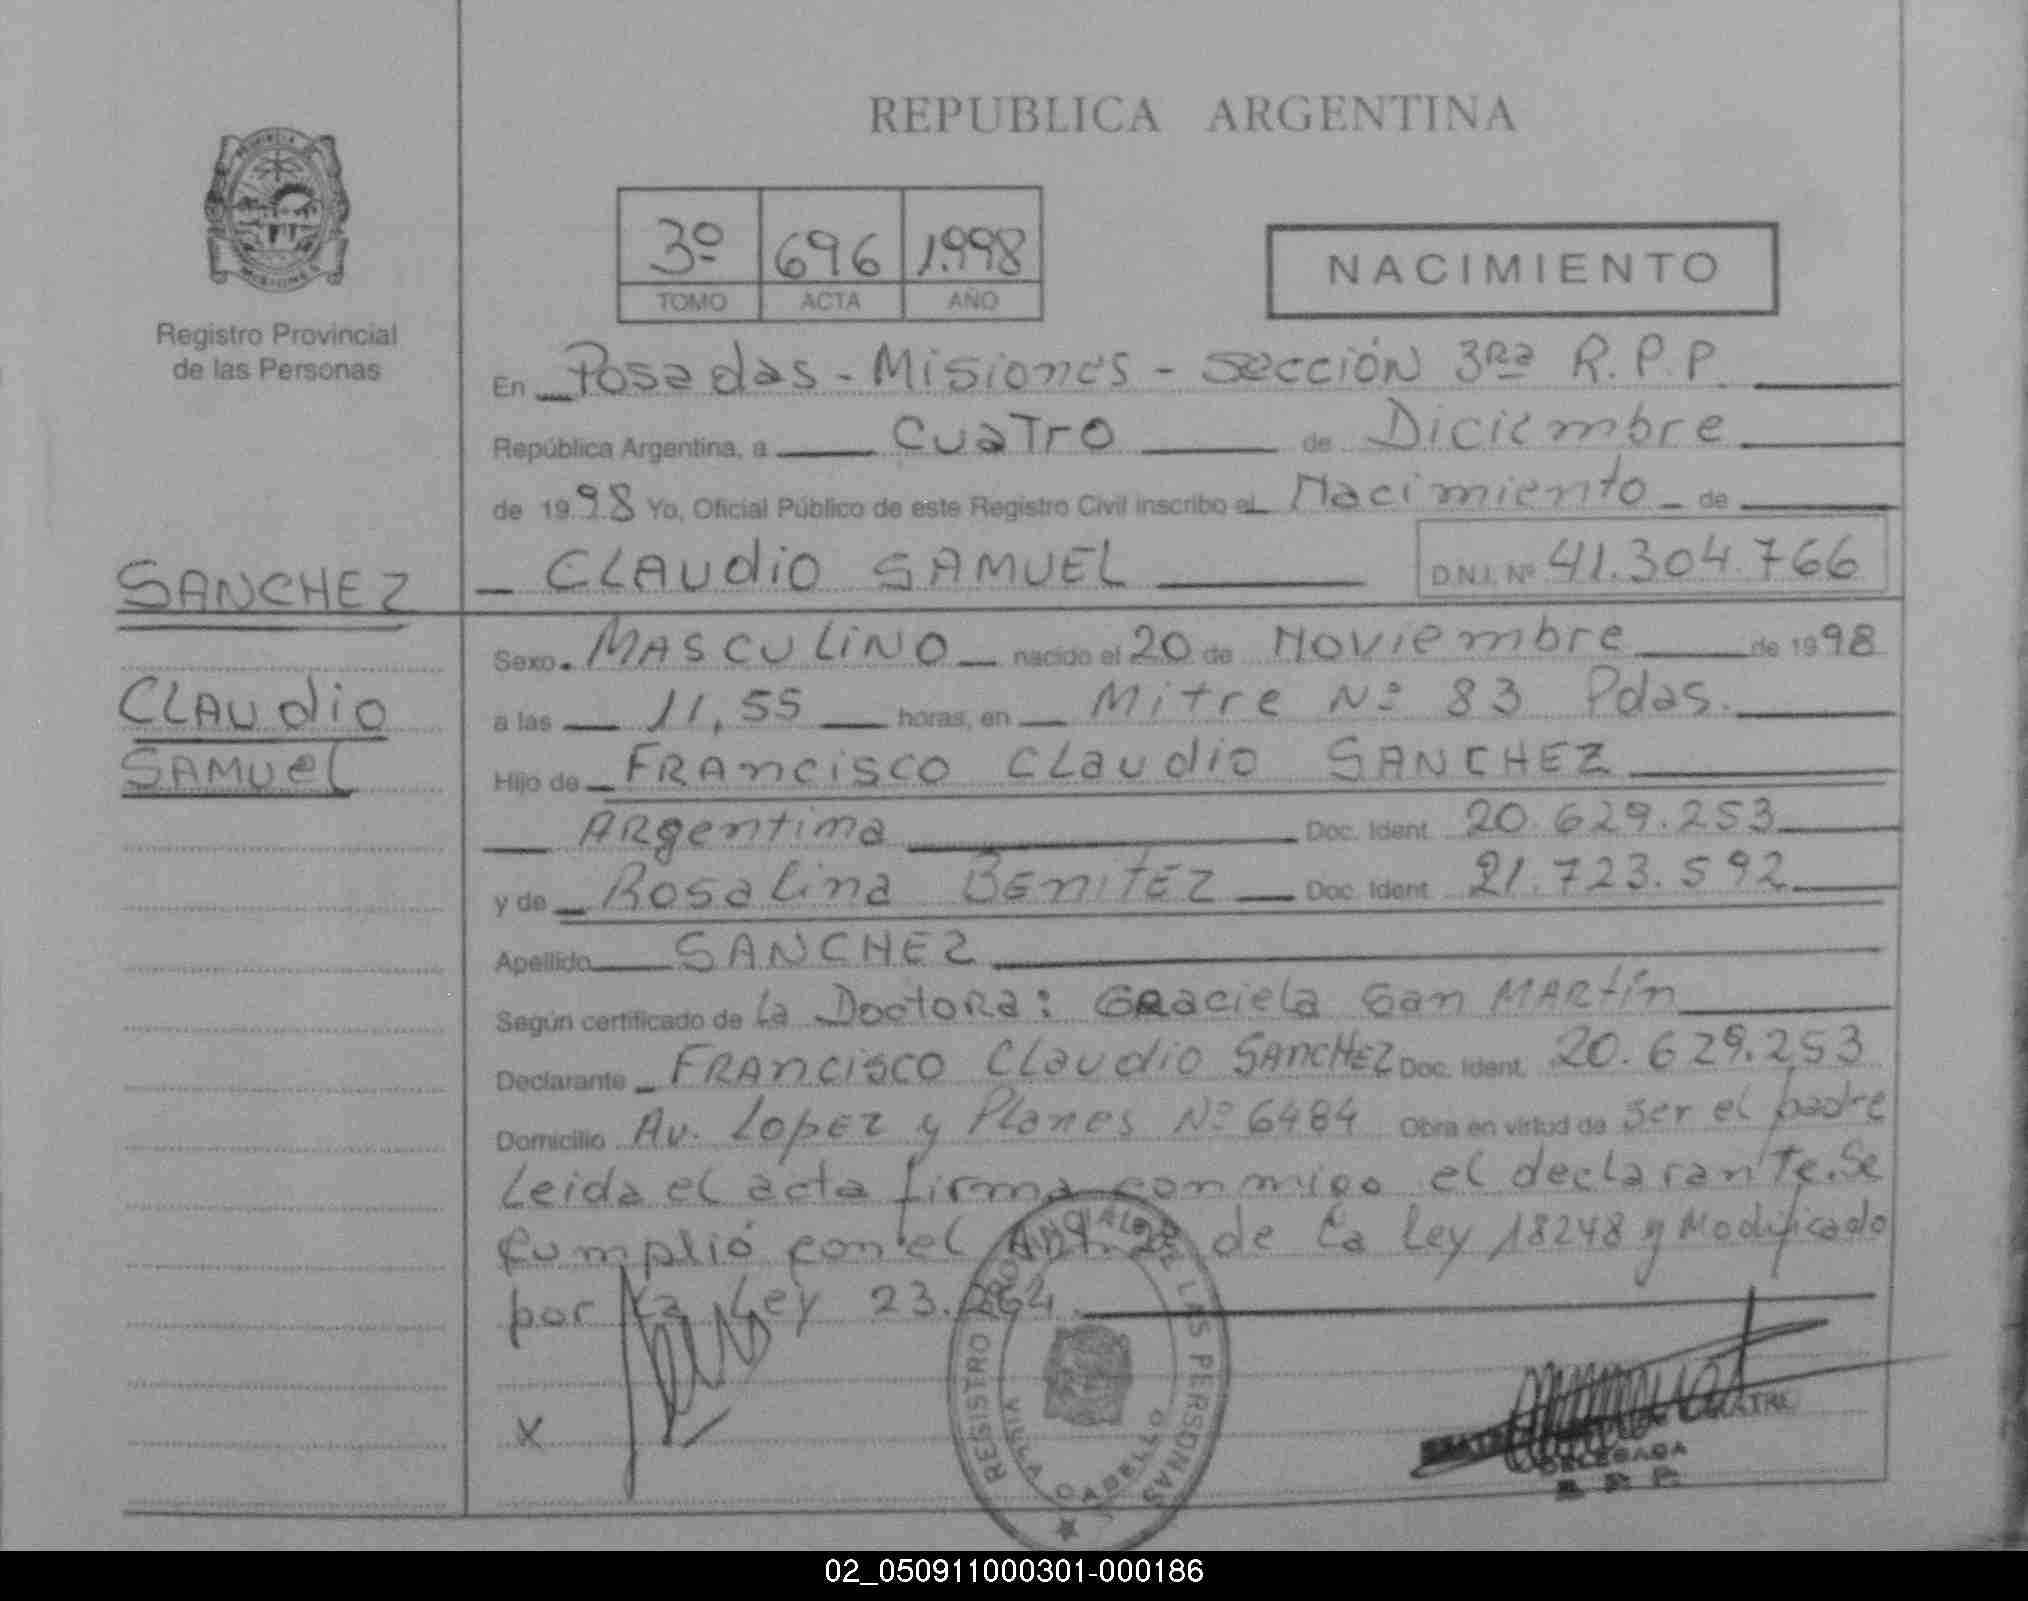 REPUBLICA ARGENTINA
PROVINCIA DE
MISIONES
Registro Provincial
de las Personas
3º 696 1.998
TOMO ACTA AÑO
NACIMIENTO
En Posadas - Misiones - Sección 3Ra R.P.P.
República Argentina, a Cuatro de Diciembre
de 1998 Yo, Oficial Público de este Registro Civil inscribo el Nacimiento de
SANCHEZ
CLAUdio SAMUEL D.N.I. Nº 41.304.766
Sexo MASCULINO nacido el 20 de Noviembre de 1998
CLAUdio
SAMUEL
a las 11,55 horas, en Mitre Nº 83 Pdas.
Hijo de FRAncisco CLaudio SANCHEZ
ARgentina Doc. Ident. 20.629.253
y de Rosalina BENITEZ Doc. Ident. 21.723.592
Apellido SANCHEZ
Según certificado de La DoctoRa: GRaciela San MARtín
Declarante FRAncisco CLaudio SANCHEZ Doc. Ident. 20.629.253
Domicilio Av. Lopez y Planes Nº 6484 Obra en virtud de ser el padre
Leida el acta firma conmigo el declarante. Se
Cumplió con el Art. de La Ley 18248 y Modificado
por La Ley 23.264
X
REGISTRO PROVINCIAL DE LAS PERSONAS
VILLA CABELLO
DELEGADA
R P P
02_050911000301-000186